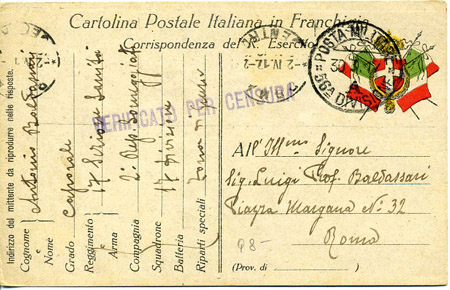 Cartolina Postale Italiana in Franchigia
Corrispondenza del R. Esercito
POSTA MILITARE
56ª DIVISIONE
30
VERIFICATO PER CENSURA
All'Illmo Signore
Sig. Luigi Prof. Baldassari
Piazza Margana N. 32
Roma
(Prov. di )
98-
Indirizzo del mittente da riprodurre nelle risposte.
Cognome Antonio Baldassari
e Nome
Grado Caporale
Reggimento 17
Arma
Compagnia 2ª
Squadrone 17 Divisione
Batteria
Riparti speciali Zona di guerra